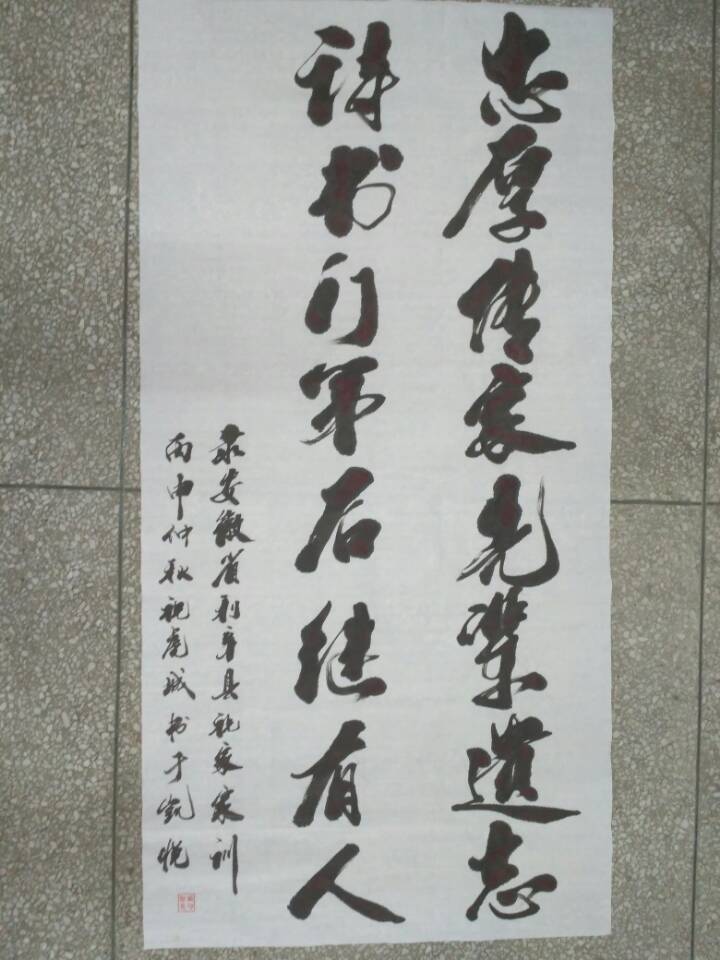 忠厚传家先辈遗志
诗书门第后继有人
录安徽省利辛县祝家家训
丙申仲秋祝虎城书于凯悦